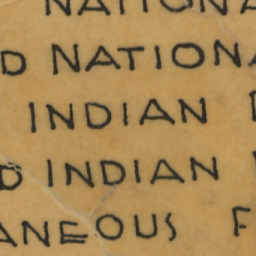 NATIONA
D NATIONA
INDIAN
D INDIAN
ANEOUS F